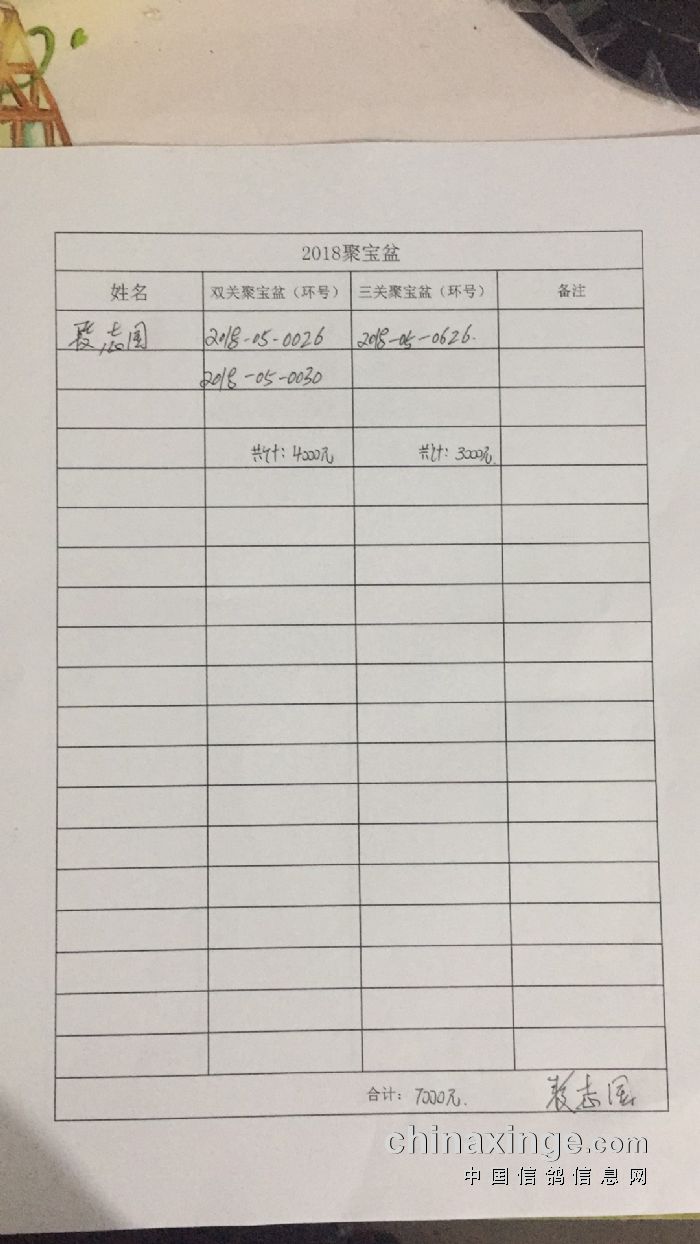 2018聚宝盆
姓名 双关聚宝盆（环号） 三关聚宝盆（环号） 备注
志国 2018-05-0026 2018-05-0626.
2018-05-0030
共计：4000元 共计：3000元.
合计：7000元. 志国
chinaxinge.com
中国信鸽信息网